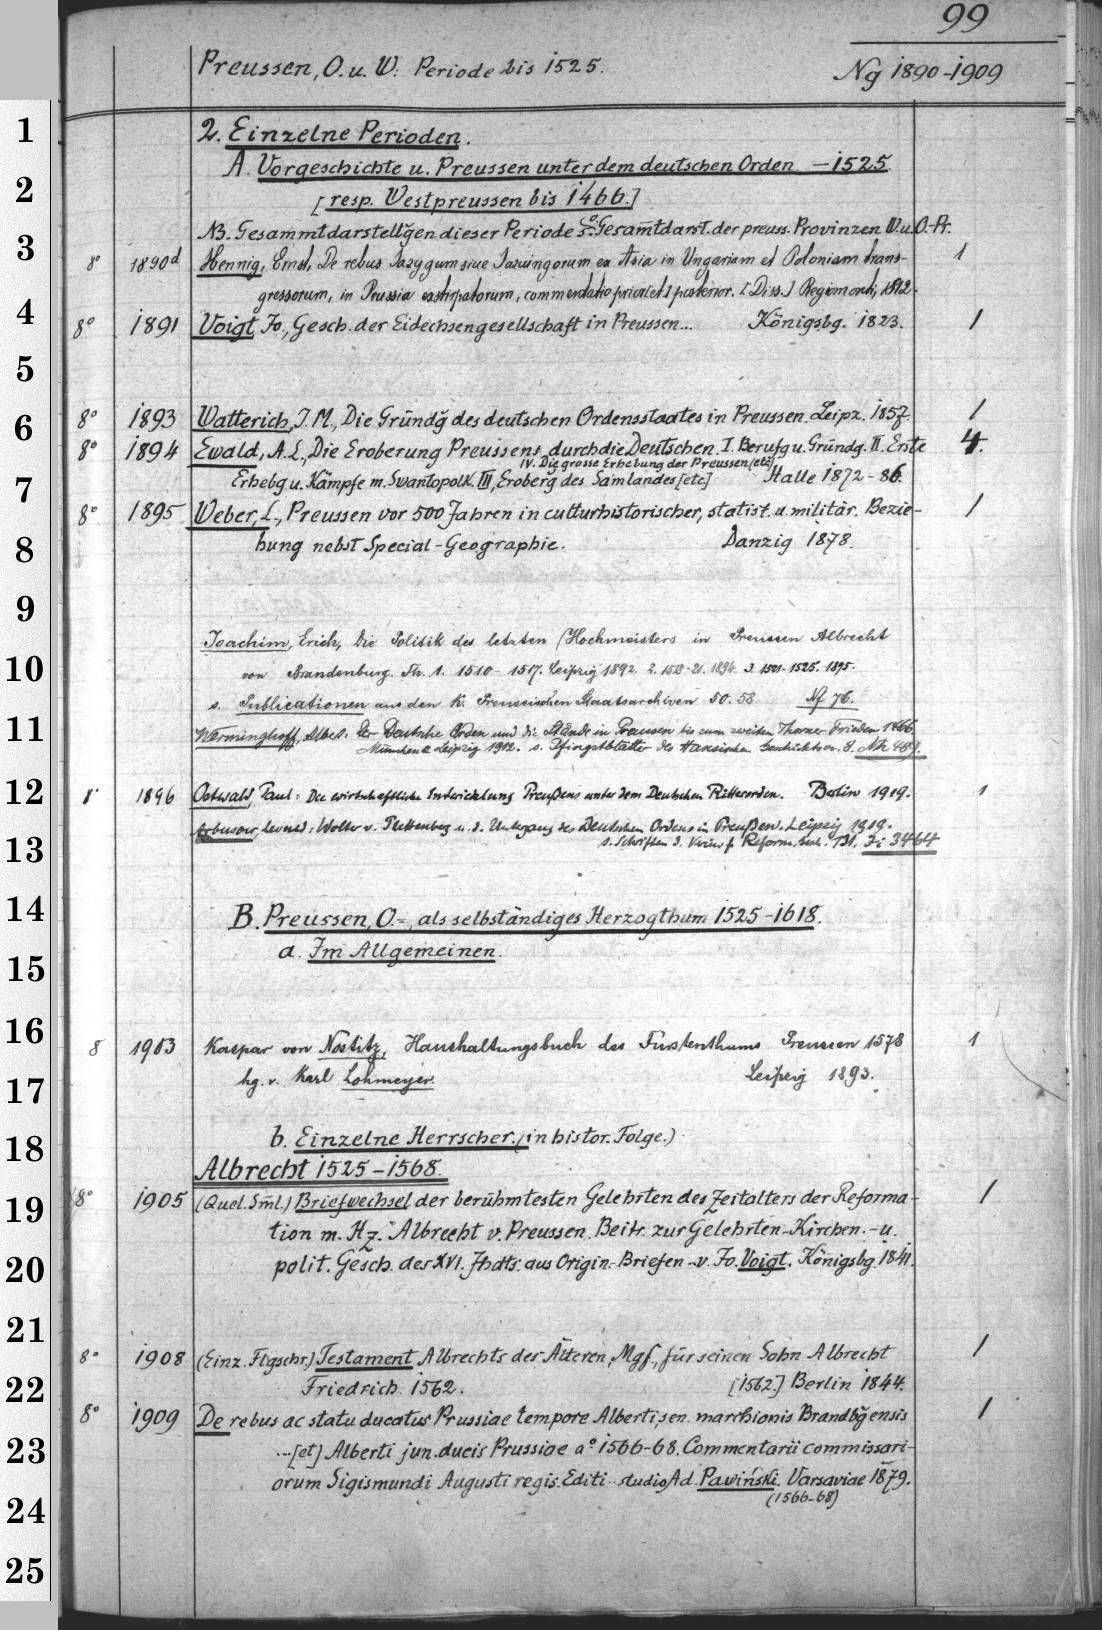 99
Preussen, O. u. W. Periode bis 1525.
Ng 1890-1909
1
2
3
4
5
6
7
8
9
10
11
12
13
14
15
16
17
18
19
20
21
22
23
24
25
2. Einzelne Perioden.
A. Vorgeschichte u. Preussen unter dem deutschen Orden — 1525
[resp. Westpreussen bis 1466.]
NB. Gesammtdarstellg̅en dieser Periode s. Gesam̅tdarst. der preuss. Provinzen W. u. O.-Pr.
8° 1890d Hennig, Ernst, De rebus Jazygum sive Jazuingorum ex Asia in Ungariam et Poloniam trans- 1
gressorum, in Prussia exstirpatorum, commentatio prior [et] posterior. [Diss.] Regiomonti, 1812.
8° 1891 Voigt, Jo., Gesch. der Eidechsengesellschaft in Preussen... Königsbg. 1823. 1
8° 1893 Watterich, J. M., Die Gründg̅ des deutschen Ordensstaates in Preussen. Leipz. 1857. 1
8° 1894 Ewald, A. L., Die Eroberung Preussens durch die Deutschen. I. Berufg u. Gründg. II. Erste 4.
IV. Die grosse Erhebung der Preussen [etc]
Erhebg u. Kämpfe m. Swantopolk. III, Eroberg des Samlandes [etc] Halle 1872-86.
8° 1895 Weber, L., Preussen vor 500 Jahren in culturhistorischer, statist. u. militär. Bezie- 1
hung nebst Special-Geographie. Danzig 1878.
Joachim, Erich, Die Politik des letzten Hochmeisters in Preussen Albrecht
von Brandenburg. Th. 1. 1510-1517. Leipzig 1892. 2. 1518-21. 1894. 3. 1521-1525. 1895.
s. Publicationen aus den K. Preussischen Staatsarchiven 50. 58 Nf 76.
Werminghoff, Albert: Der Deutsche Orden und die Stände in Preussen bis zum zweiten Thorner Frieden 1466.
München & Leipzig 1912. s. Pfingstblätter des Hansischen Geschichtsv. 8. Nh 489.
8° 1896 Ostwald, Paul: Die wirtschaftliche Entwicklung Preußens unter dem Deutschen Ritterorden. Berlin 1919. 1
Arbusow, Leonid: Wolter v. Plettenberg u. d. Untergang des Deutschen Ordens in Preußen. Leipzig 1919.
s. Schriften d. Vereins f. Reform. Gesch. 131. Fi 3464
B. Preussen, O.-, als selbständiges Herzogthum 1525-1618.
a. Im Allgemeinen.
8 1903 Kaspar von Nostitz, Haushaltungsbuch des Fürstenthums Preussen 1578 1
hg. v. Karl Lohmeyer. Leipzig 1893.
b. Einzelne Herrscher. (in histor. Folge.)
Albrecht 1525-1568.
8° 1905 (Quel. Sm̅l.) Briefwechsel der berühmtesten Gelehrten des Zeitalters der Reforma- 1
tion m. Hz. Albrecht v. Preussen. Beitr. zur Gelehrten-Kirchen.-u.
polit. Gesch. des XVI. Jhdts. aus Origin.-Briefen - v. Jo. Voigt. Königsbg. 1841.
8° 1908 (Einz. Flgschr.) Testament Albrechts des Älteren, Mgf., für seinen Sohn Albrecht 1
Friedrich. 1562. [1562.] Berlin 1844.
8° 1909 De rebus ac statu ducatus Prussiae tempore Alberti, sen. marchionis Brandbg̅ensis 1
...[et] Alberti jun. ducis Prussiae a° 1566-68. Commentarii commissari-
orum Sigismundi Augusti regis. Editi studio Ad. Pawiński. Varsaviae 1879.
(1566-68)